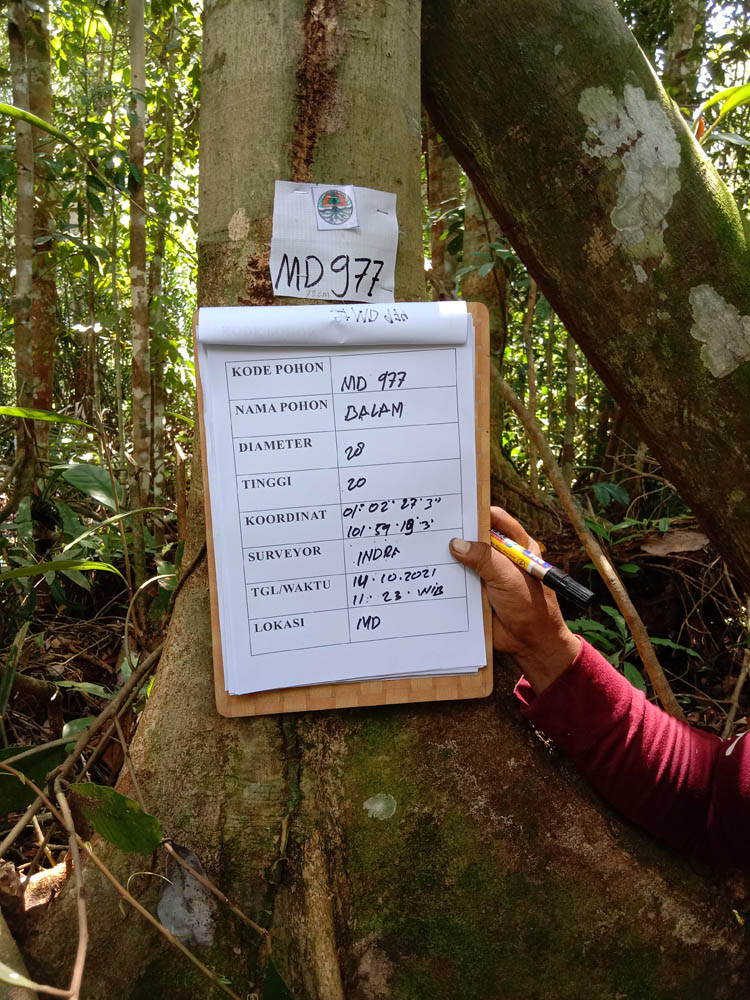 MD 977
KODE POHON MD 977
NAMA POHON BALAM
DIAMETER 28
TINGGI 20
KOORDINAT 01° 02' 27'3"
101° 59' 19'3"
SURVEYOR INDRA
TGL/WAKTU 14.10.2021
11: 23. WIB
LOKASI MD